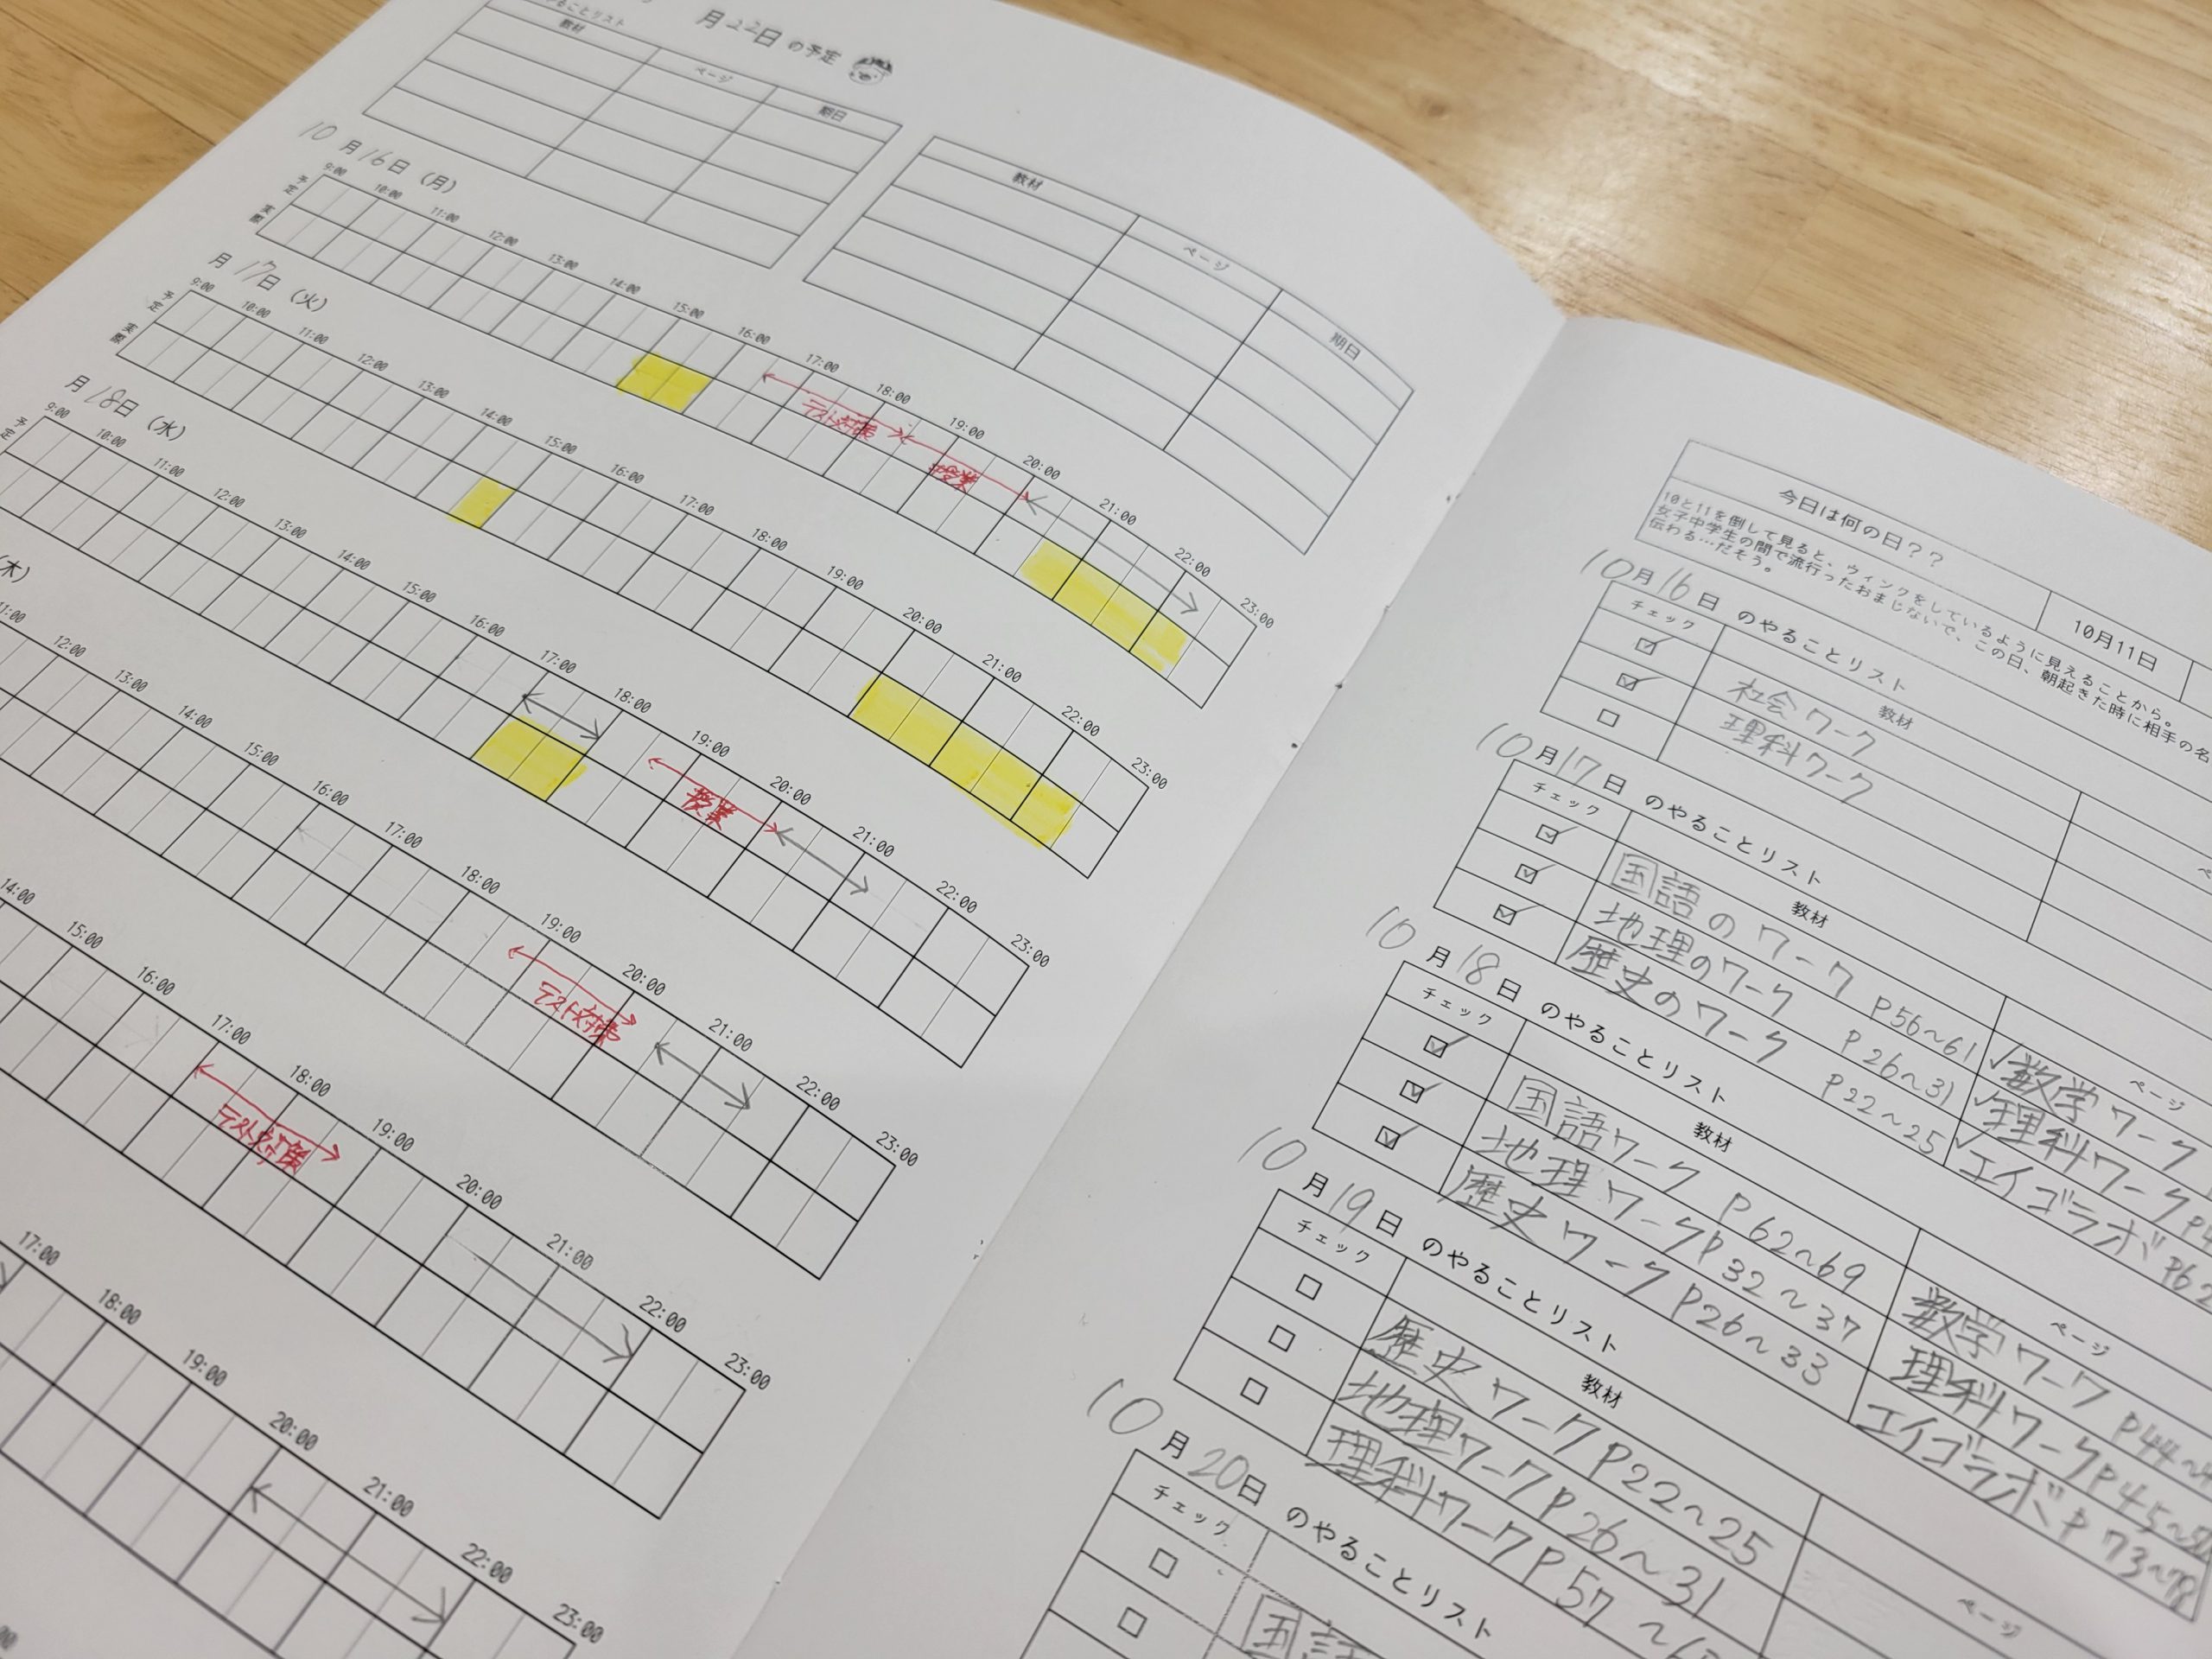 月22日 の予定
ることリスト
教材 ページ 期日
教材 ページ 期日
10月16日（月）
9:00 10:00 11:00 12:00 13:00 14:00 15:00 16:00 17:00 18:00 19:00 20:00 21:00 22:00 23:00
予定
実際
テスト対策
授業
月17日（火）
9:00 10:00 11:00 12:00 13:00 14:00 15:00 16:00 17:00 18:00 19:00 20:00 21:00 22:00 23:00
予定
実際
月18日（水）
9:00 10:00 11:00 12:00 13:00 14:00 15:00 16:00 17:00 18:00 19:00 20:00 21:00 22:00 23:00
予定
授業
（木）
11:00 12:00 13:00 14:00 15:00 16:00 17:00 18:00 19:00 20:00 21:00 22:00 23:00
テスト対策
14:00 15:00 16:00 17:00 18:00 19:00 20:00 21:00 22:00 23:00
テスト対策
17:00 18:00 19:00 20:00 21:00 22:00 23:00
今日は何の日？？
10月11日
10と11を倒して見ると、ウィンクをしているように見えることから。
女子中学生の間で流行ったおまじないで、この日、朝起きた時に相手の名
伝わる…だそう。
10月16日 のやることリスト
チェック 教材
社会ワーク
理科ワーク
10月17日 のやることリスト
チェック 教材 ページ
国語のワーク P56～61 数学ワーク
地理のワーク P26～31 理科ワーク
歴史のワーク P22～25 エイゴラボ P62
10月18日 のやることリスト
チェック 教材 ページ
国語ワーク P62～69 数学ワーク P44～
地理ワーク P32～37 理科ワーク P45～
歴史ワーク P26～33 エイゴラボ P73～78
10月19日 のやることリスト
チェック 教材 ページ
歴史ワーク P22～25
地理ワーク P26～31
理科ワーク P57～
10月20日 のやることリスト
チェック
国語